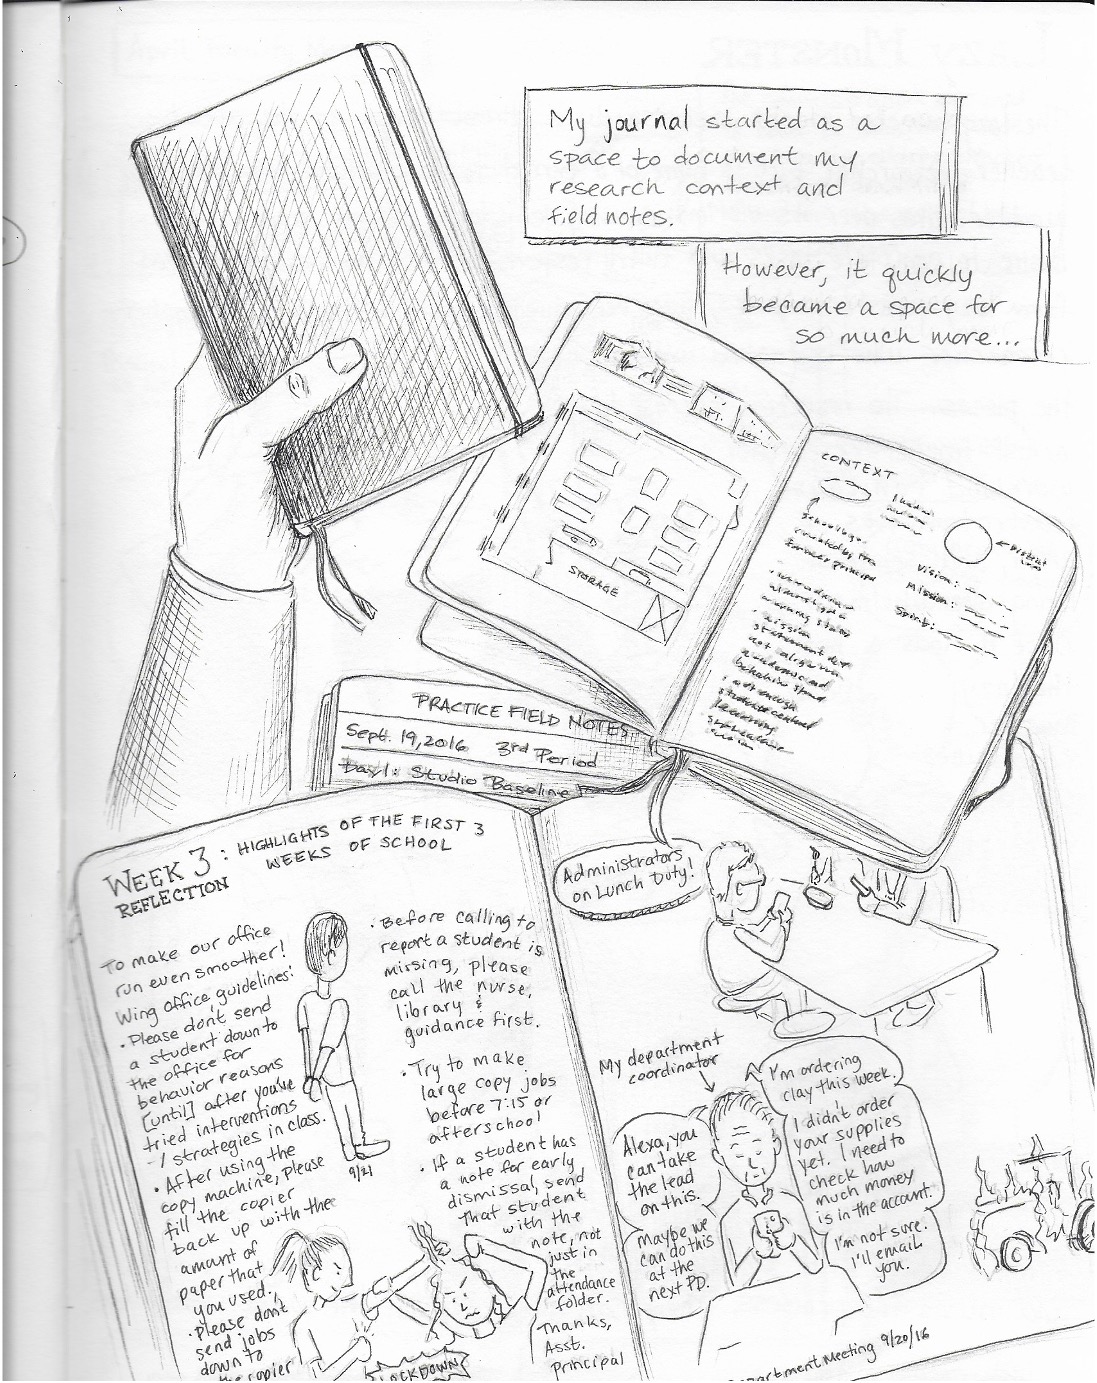 My journal started as a
space to document my
research context and
field notes.
However, it quickly
became a space for
so much more...
STORAGE
CONTEXT
created by the
former principal
District
Vision:
Mission:
Spirit:
mission
statement
PRACTICE FIELD NOTES
Sept. 19, 2016 3rd Period
Day 1: Studio Baseline
WEEK 3: HIGHLIGHTS OF THE FIRST 3
WEEKS OF SCHOOL
REFLECTION
To make our office
run even smoother!
Wing office guidelines:
• Please don't send
a student down to
the office for
behavior reasons
[until] after you've
tried interventions
/ strategies in class.
• After using the
copy machine, please
fill the copier
back up with the
amount of
paper that
you used.
• Please don't
send jobs
down to
the copier
9/21
• Before calling to
report a student is
missing, please
call the nurse,
library &
guidance first.
• Try to make
large copy jobs
before 7:15 or
afterschool
• If a student has
a note for early
dismissal, send
that student
with the
note, not
just in
the
attendance
folder.
Thanks,
Asst.
Principal
LOCKDOWN
Administrators
on Lunch Duty!
My department
coordinator
I'm ordering
clay this week.
I didn't order
your supplies
yet. I need to
check how
much money
is in the account.
I'm not sure.
I'll email
you.
Alexa, you
can take
the lead
on this.
Maybe we
can do this
at the
next PD.
Department Meeting 9/20/16